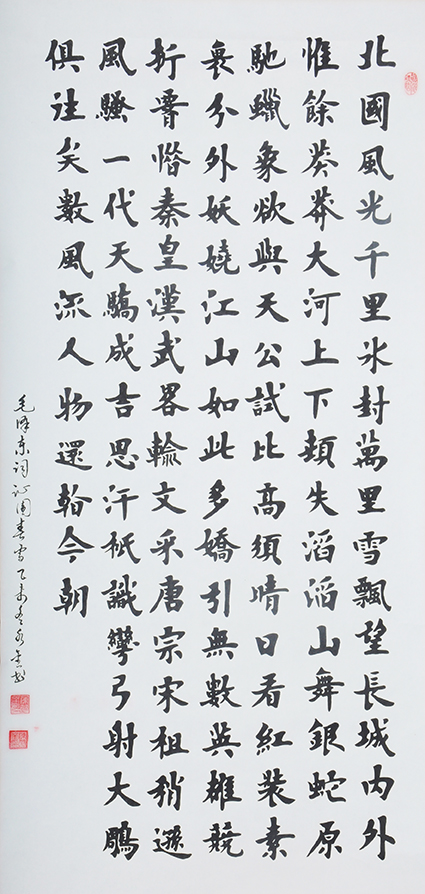 北國風光千里冰封萬里雪飄望長城内外
惟餘莽莽大河上下頓失滔滔山舞銀蛇原
馳蠟象欲與天公試比高須晴日看紅裝素
裹分外妖嬈江山如此多嬌引無數英雄競
折腰惜秦皇漢武畧輸文采唐宗宋祖稍遜
風騷一代天驕成吉思汗祇識彎弓射大鵰
俱往矣數風流人物還看今朝
毛泽东词沁園春雪乙未冬永